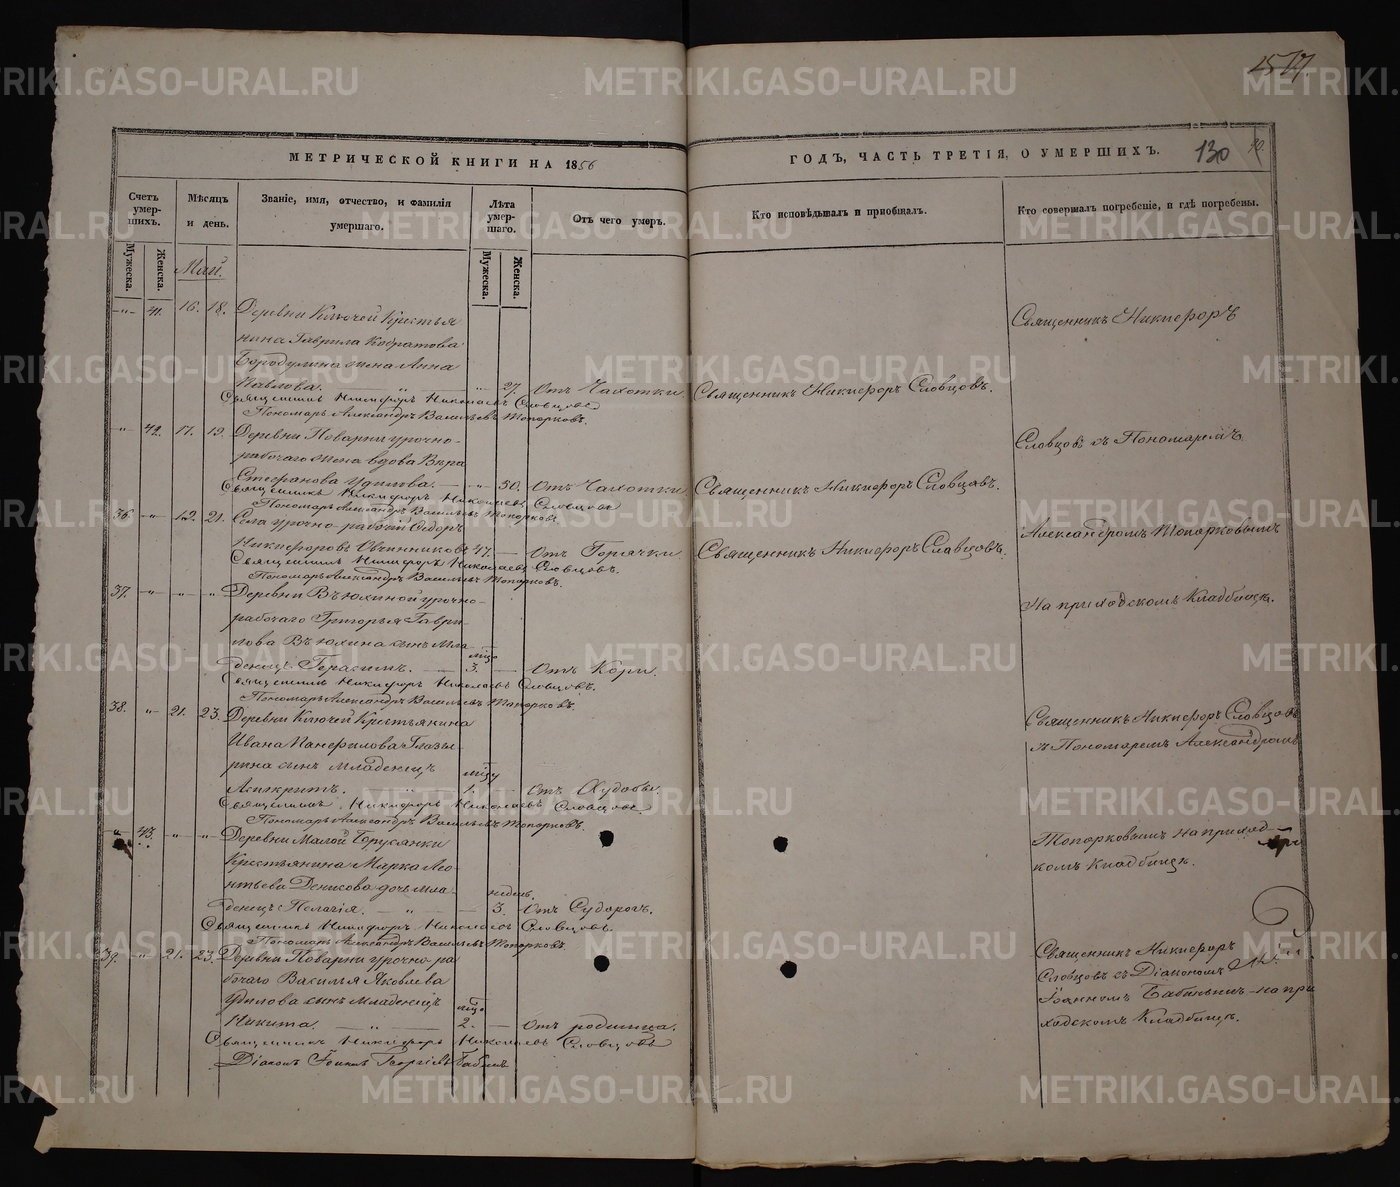 517.
МЕТРИЧЕСКОЙ КНИГИ НА 1856
ГОДЪ, ЧАСТЬ ТРЕТІЯ, О УМЕРШИХЪ.
130
Счетъ умершихъ.
Мужеска.
Женска.
Мѣсяцъ и день.
Званіе, имя, отчество, и фамилія умершаго.
Лѣта умершаго.
Мужеска.
Женска.
Отъ чего умеръ.
Кто исповѣдывалъ и пріобщалъ.
Кто совершалъ погребеніе, и гдѣ погребены.
Май.
41. 16. 18. Деревни Ключей Крестья
нина Гаврила
Бородулина жена Анна
Павлова. 27. Отъ Чахотки. Священникъ Никифоръ Словцовъ.
Священникъ Никифоръ Николаевъ Словцовъ
Пономарь Александръ Васильевъ Топорковъ.
Священникъ Никифоръ
42. 17. 19. Деревни Поварни урочно-
рабочаго жена вдова Вѣра
Стефанова Удилова. 50. Отъ Чахотки. Священникъ Никифоръ Словцовъ.
Священникъ Никифоръ Николаевъ Словцовъ
Пономарь Александръ Васильевъ Топорковъ.
Словцовъ съ Пономаремъ
36 19. 21. Села урочно-рабочій Ѳедоръ
Никифоровъ Овчинниковъ 47. Отъ Горячки. Священникъ Никифоръ Словцовъ.
Священникъ Никифоръ Николаевъ Словцовъ.
Пономарь Александръ Васильевъ Топорковъ.
Александромъ Топорковымъ
37. Деревни Вьюхиной урочно-
рабочаго Григорья Гаври
лова Вьюхина сынъ Мла
денецъ Герасимъ. 3. Отъ Кори.
Священникъ Никифоръ Николаевъ Словцовъ.
Пономарь Александръ Васильевъ Топорковъ.
На приходскомъ Кладбищѣ.
38. 21. 23. Деревни Ключей Крестьянина
Ивана Панфилова Глазы
рина сынъ Младенецъ
1. Отъ Худобы.
Священникъ Никифоръ Николаевъ Словцовъ
Пономарь Александръ Васильевъ Топорковъ.
Священникъ Никифоръ Словцовъ
съ Пономаремъ Александромъ
43. Деревни Малой Брусянки
Крестьянина Марка Лео
нтьева Денисова дочь Мла
денецъ Пелагія. недель. 3. Отъ Судорогъ.
Священникъ Никифоръ Николаевъ Словцовъ.
Пономарь Александръ Васильевъ Топорковъ
Топорковымъ на приход-
комъ Кладбищѣ.
39. 21. 23. Деревни Поварни урочно-ра
бочаго Василья Яковлева
Удилова сынъ Младенецъ
Никита. 2. Отъ родимца.
Священникъ Никифоръ Николаевъ Словцовъ
Діаконъ Іоаннъ Георгіевъ Бабинъ
Священникъ Никифоръ
Словцовъ съ Діакономъ
Іоанномъ Бабинымъ на при
ходскомъ Кладбищѣ.
METRIKI.GASO-URAL.RU